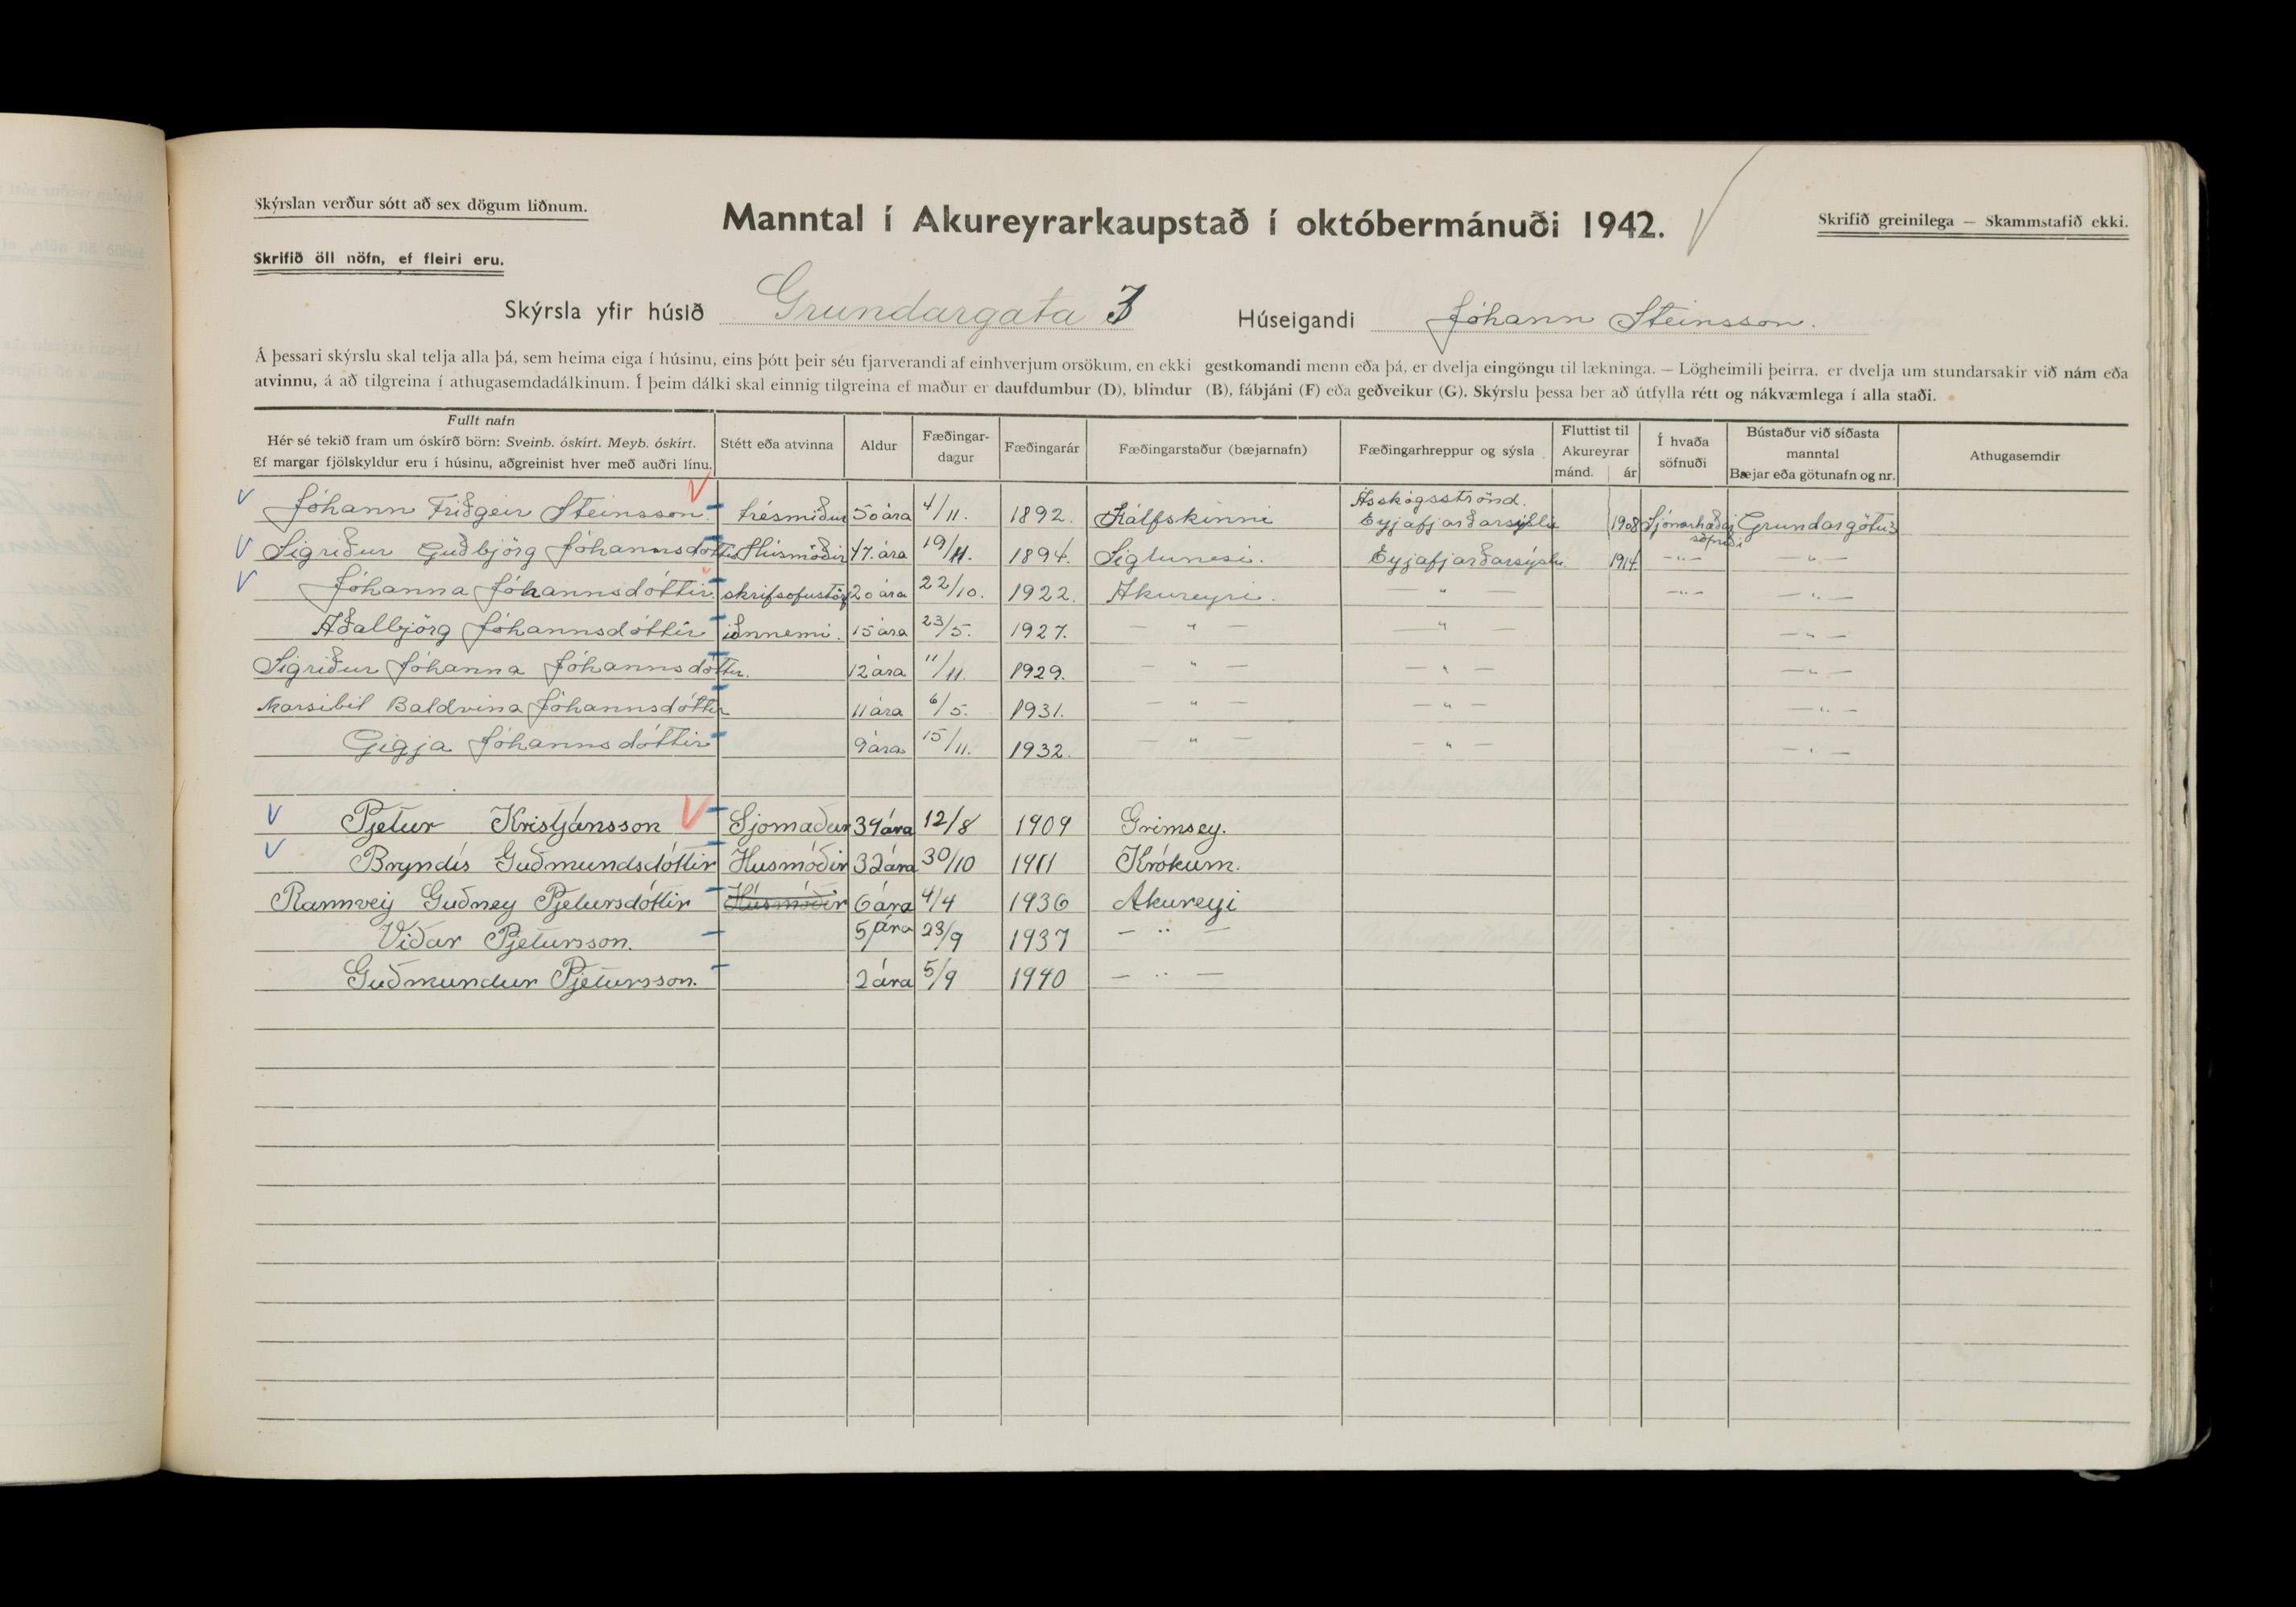 Skýrslan verður sótt að sex dögum liðnum.
Manntal í Akureyrarkaupstað í októbermánuði 1942.
Skrifið greinilega — Skammstafið ekki.
Skrifið öll nöfn, ef fleiri eru.
Skýrsla yfir húsið Grundargata 3 Húseigandi Jóhann Steinsson.
Á þessari skýrslu skal telja alla þá, sem heima eiga í húsinu, eins þótt þeir séu fjarverandi af einhverjum orsökum, en ekki gestkomandi menn eða þá, er dvelja eingöngu til lækninga. — Lögheimili þeirra, er dvelja um stundarsakir við nám eða
atvinnu, á að tilgreina í athugasemdadálkinum. Í þeim dálki skal einnig tilgreina ef maður er daufdumbur (D), blindur (B), fábjáni (F) eða geðveikur (G). Skýrslu þessa ber að útfylla rétt og nákvæmlega í alla staði.
Fullt nafn
Hér sé tekið fram um óskírð börn: Sveinb. óskírt. Meyb. óskírt.
Ef margar fjölskyldur eru í húsinu, aðgreinist hver með auðri línu.
Stétt eða atvinna
Aldur
Fæðingar-
dagur
Fæðingarár
Fæðingarstaður (bæjarnafn)
Fæðingarhreppur og sýsla
Fluttist til
Akureyrar
mánd. ár
Í hvaða
söfnuði
Bústaður við síðasta
manntal
Bæjar eða götunafn og nr.
Athugasemdir
Jóhann Friðgeir Steinsson. trésmiður 50 ára 4/11. 1892. Kálfskinni Ásskógsströnd. Eyjafjarðarsýslu 1908 Sjónarhæðar söfnuði Grundargötu 3
Sigriður Guðbjörg Jóhannsdóttir Húsmóðir 47. ára 19/11. 1894. Siglunesi. Eyjafjarðarsýslu. 1914. — " — — " —
Jóhanna Jóhannsdóttir. skrifsofustörf 20 ára 22/10. 1922. Akureyri. — " — — " — — " —
Aðalbjörg Jóhannsdóttir iðnnemi. 15 ára 23/5. 1927. — " — — " — — " —
Sigriður Jóhanna Jóhannsdóttir. 12 ára 11/11. 1929. — " — — " — — " —
Marsibil Baldvina Jóhannsdóttir 11 ára 6/5. 1931. — " — — " — — " —
Gigja Jóhannsdóttir 9 ára 15/11. 1932. — " — — " — — " —
Pjetur Kristjánsson Sjomaður 39 ára 12/8 1909 Grimsey.
Bryndís Guðmundsdóttir Husmóðir 32 ára 30/10 1911 Krókum.
Rannveij Guðney Pjetursdóttir Húsmóðir 6 ára 4/4 1936 Akureyi
Viðar Pjetursson. 5 ára 23/9 1937 — " —
Guðmundur Pjetursson. 2 ára 5/9 1940 — " —